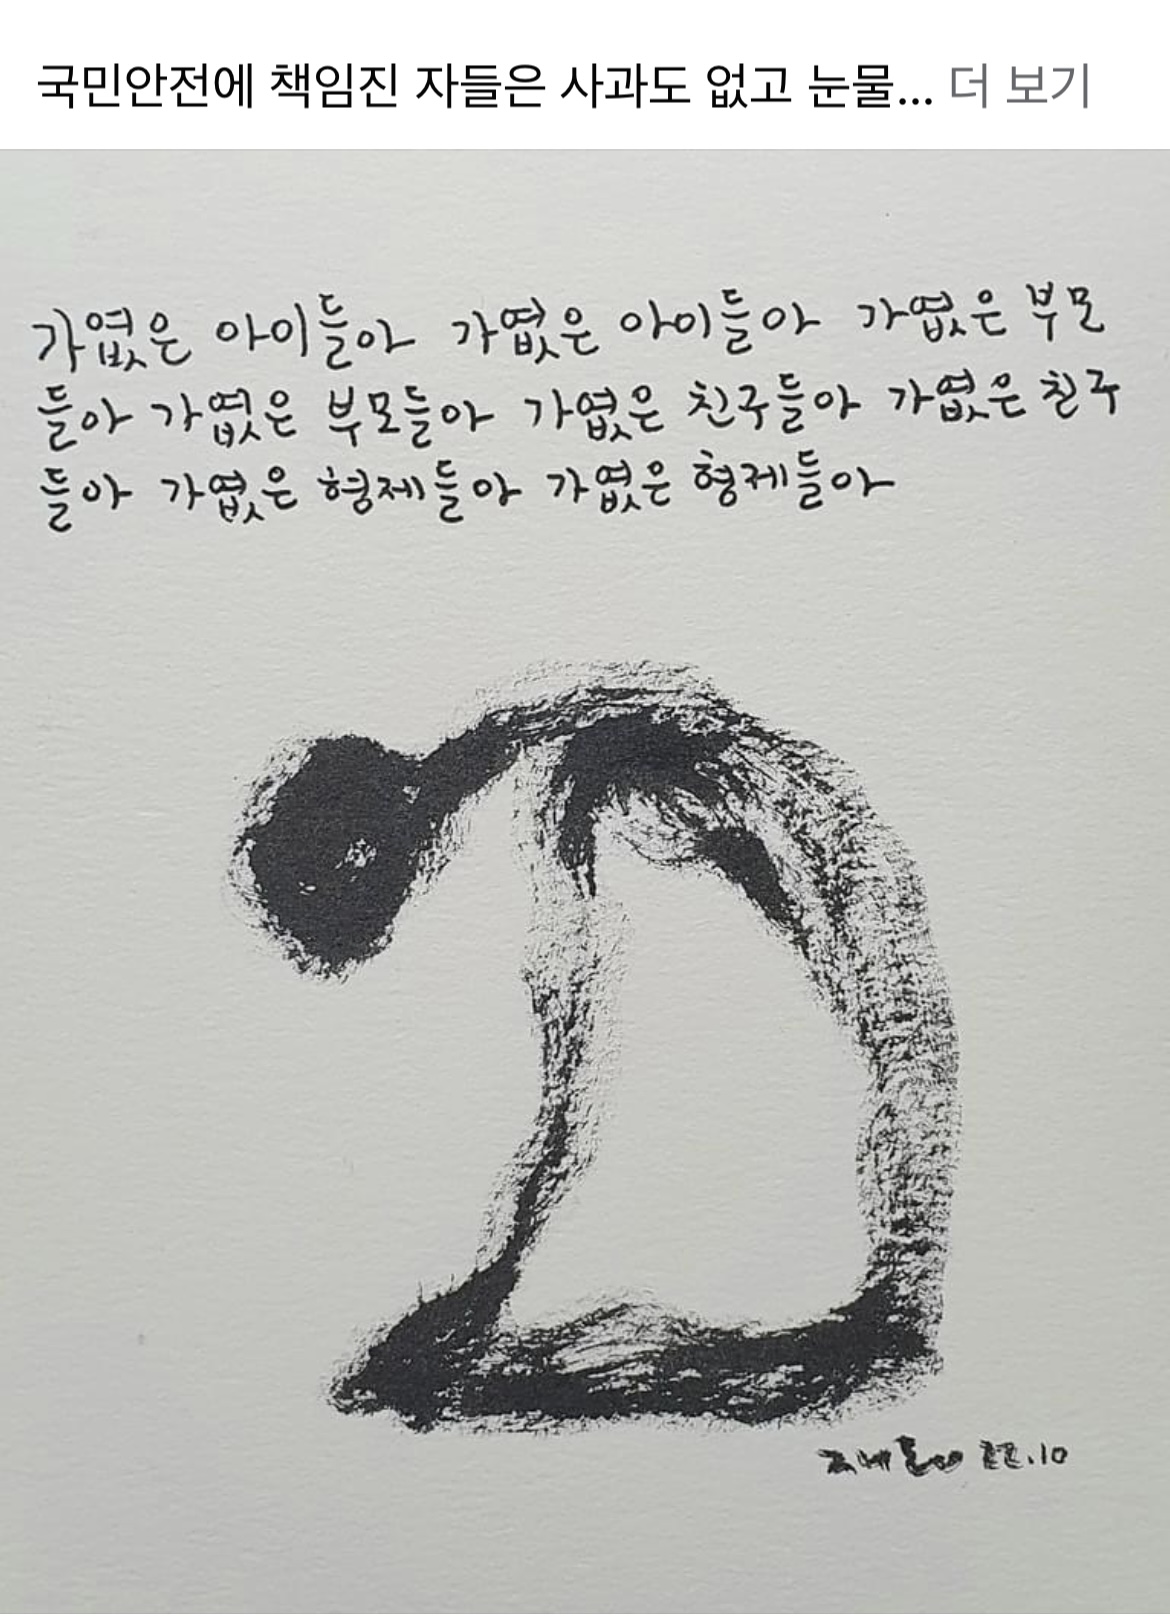 국민안전에 책임진 자들은 사과도 없고 눈물... 더 보기
가엾은 아이들아 가엾은 아이들아 가엾은 부모
들아 가엾은 부모들아 가엾은 친구들아 가엾은 친구
들아 가엾은 형제들아 가엾은 형제들아
22.10